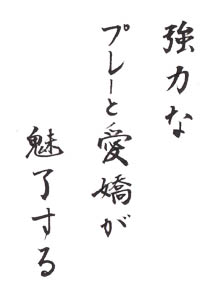 強力な
プレーと愛嬌が
魅了する